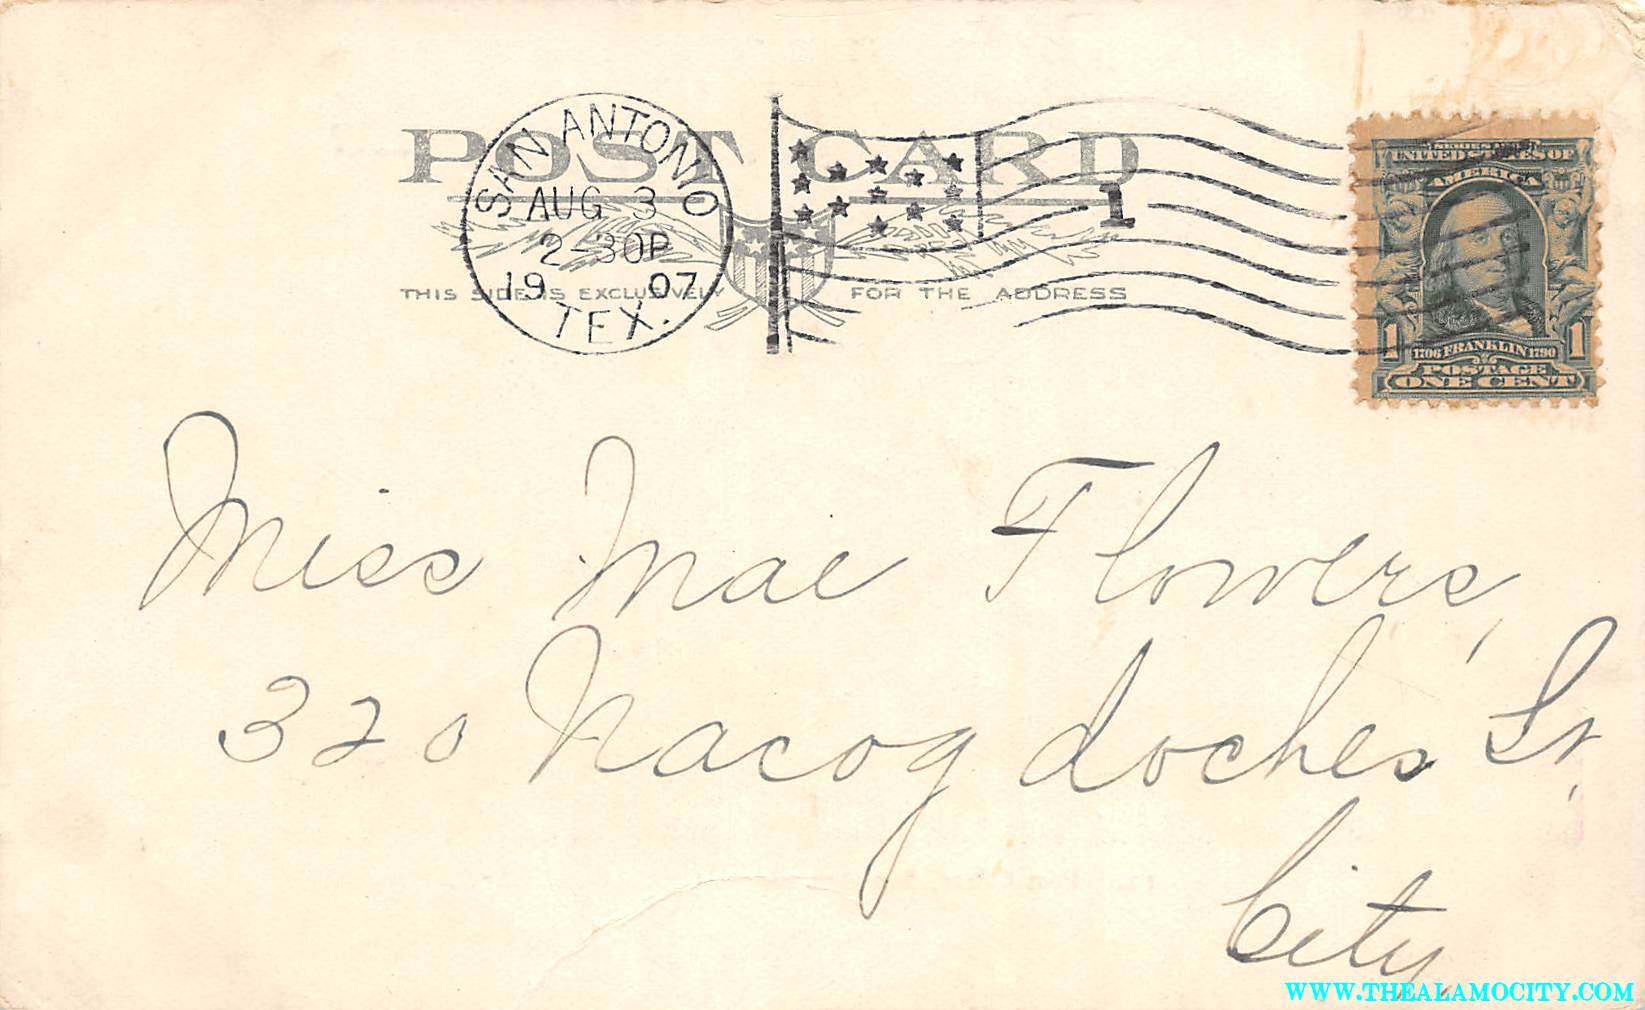 POST CARD
SAN ANTONIO
AUG 3
2-30P
1907
TEX.
1
THIS SIDE IS EXCLUSIVELY FOR THE ADDRESS
UNITED STATES OF
AMERICA
1 1706 FRANKLIN 1790 1
POSTAGE
ONE CENT
Miss Mae Flowers,
320 Nacogdoches St.
City
WWW.THEALAMOCITY.COM